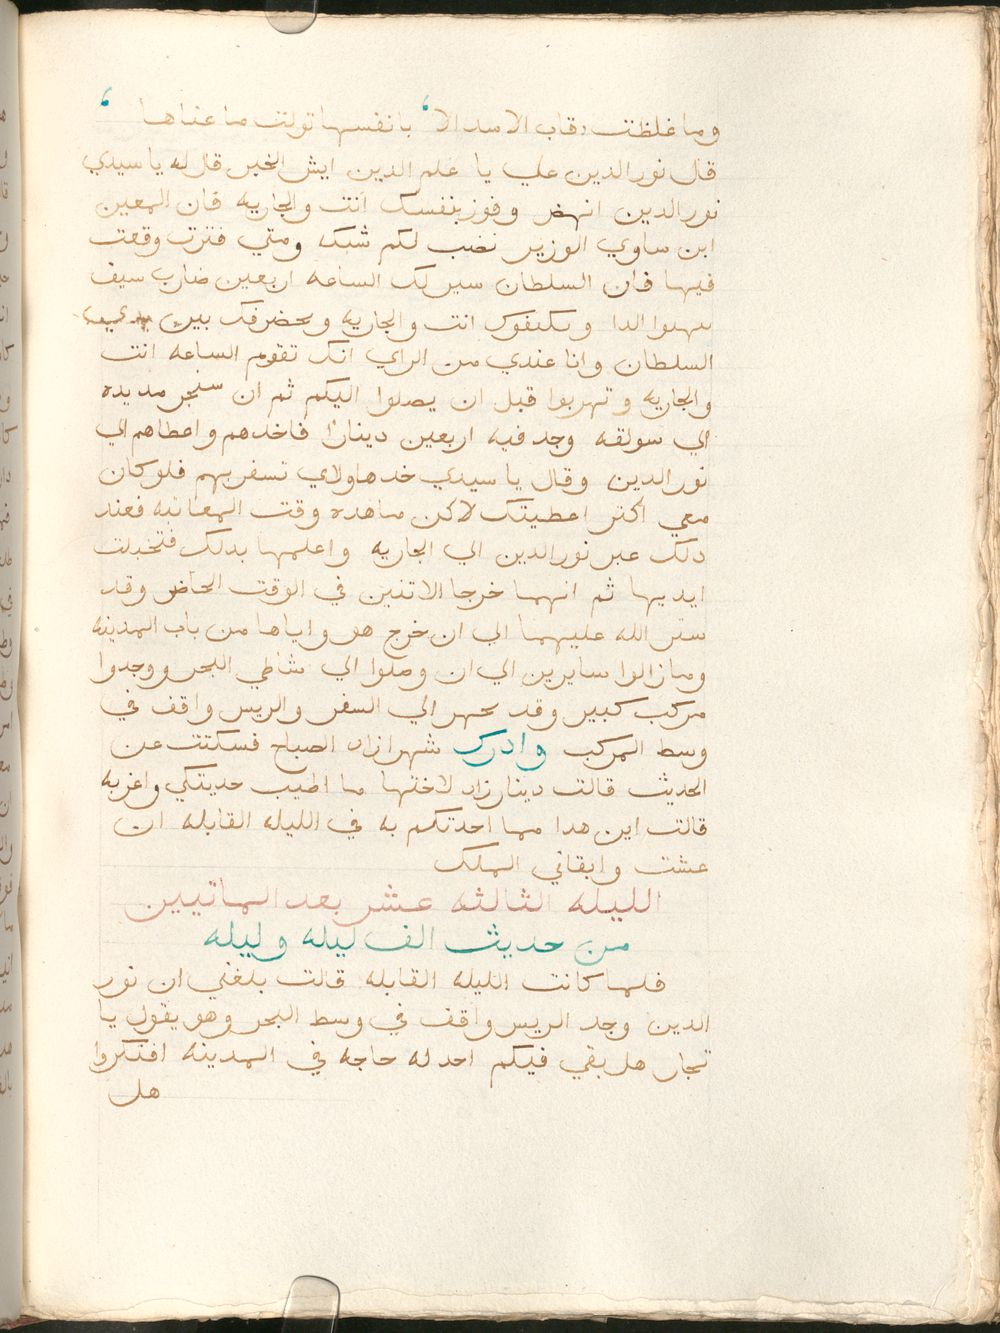 وما غلظت رقاب الاسد الا ، بانفسها تولت ما عناها ،
قال نور الدين علي يا علم الدين ايش الخبر قال له يا سيدي
نور الدين انهض وفوز بنفسك انت والجاريه فان المعين
ابن ساوي الوزير نصب لكم شبكه ومتي فترت وقعت
فيها فان السلطان سير لك الساعه اربعين ضارب سيف
ينهبوا الدا ويكتفوك انت والجاريه ويحضروك بين
السلطان وانا عندي من الراي انك تقوم الساعه انت
والجاريه وتهربوا قبل ان يصلوا اليكم ثم ان سنجر مد يده
الي سولقه وجد فيه اربعين دينارا فاخدهم واعطاهم الي
نور الدين وقال يا سيدي خد هاولاي تسفر بهم فلو كان
معي اكتر اعطيتك لاكن ما هده وقت المعاتبه فعند
دلك عبر نور الدين الي الجاريه واعلمها بدلك فتخبلت
ايديها ثم انهما خرجا الاتنين في الوقت الحاضر وقد
ستر الله عليهما الي ان خرج هو واياها من باب المدينه
وما زالوا سايرين الي ان وصلوا الي شاطي البحر ووجدوا
مركب كبير وقد تجهر الي السفر والريس واقف في
وسط المركب وادرك شهرازاد الصباح فسكتت عن
الحديث قالت دينارزاد لاختها ما اطيب حديتكي واغربه
قالت اين هدا مما احدتكم به في الليله القابله ان
عشت وابقاني الملك
الليله الثالثه عشر بعد الماتيين
من حديث الف ليله وليله
فلما كانت الليله القابله قالت بلغني ان نور
الدين وجد الريس واقف في وسط البحر وهو يقول يا
تجار هل بقي فيكم احد له حاجه في المدينه افتكروا
هل